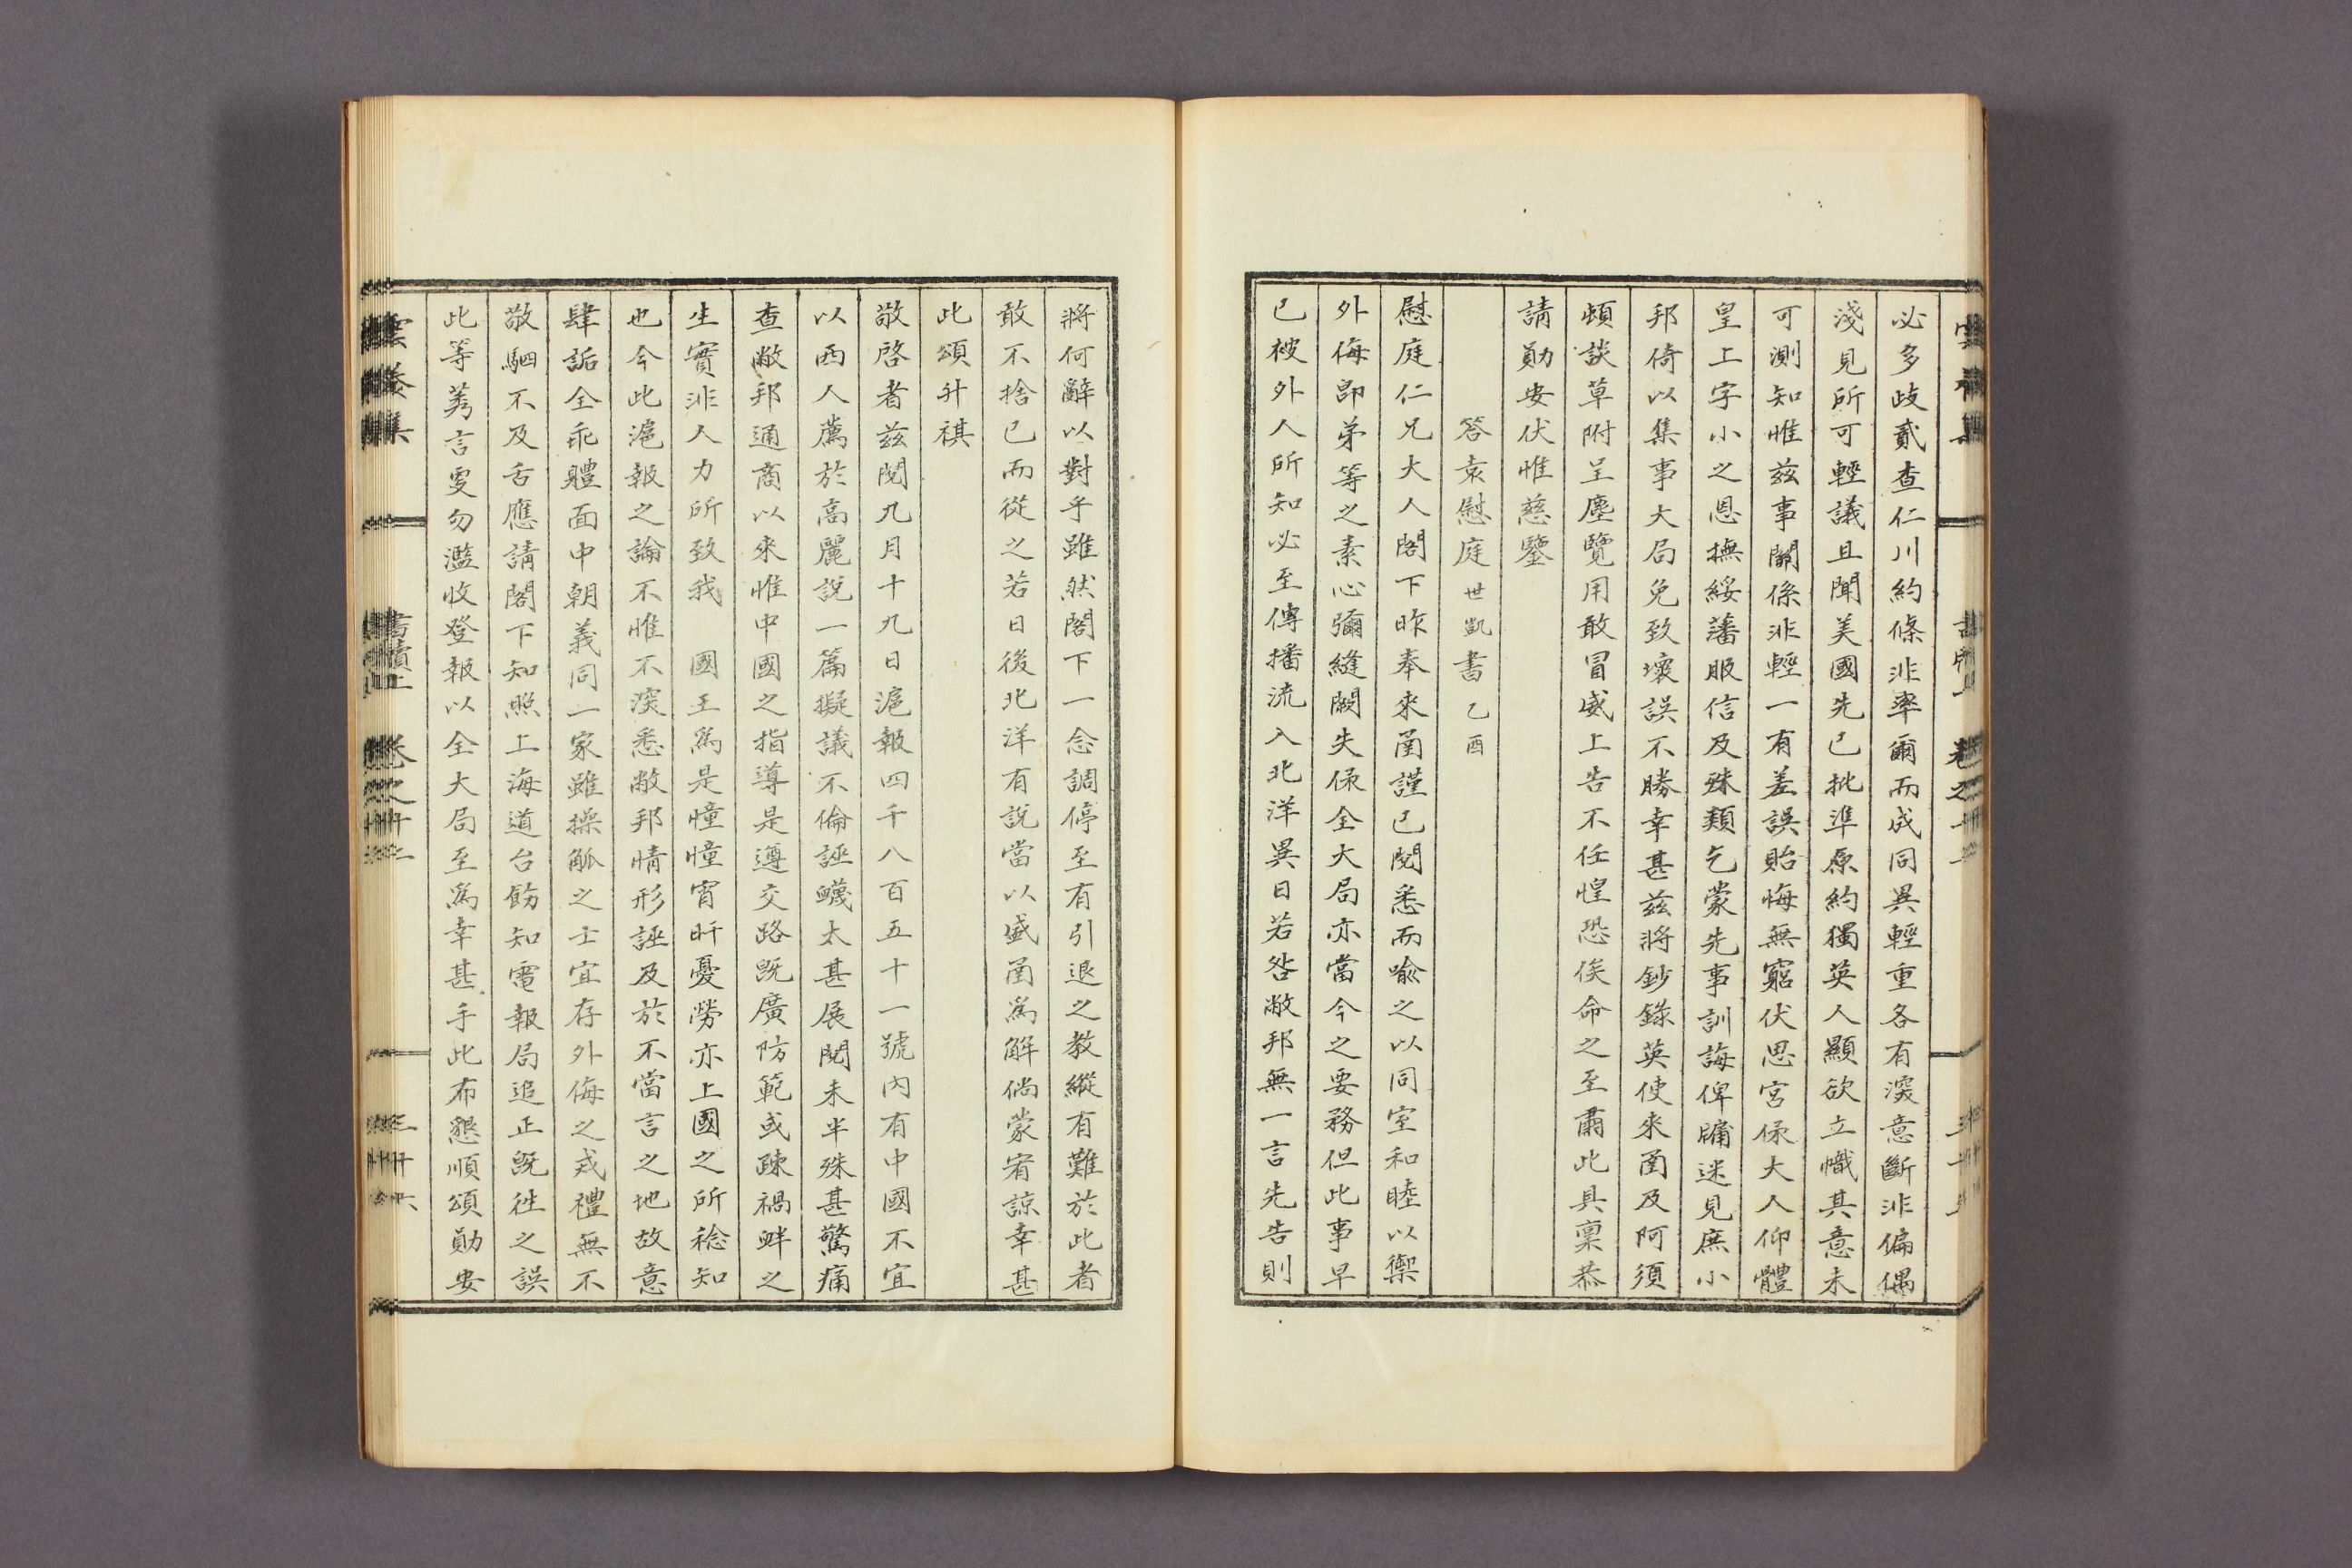 必多歧貳查仁川約條非率爾而成同異輕重各有深意斷非偏偶
淺見所可輕議且聞美國先已批準原約獨英人顯欲立幟其意未
可測知惟茲事關係非輕一有差誤貽悔無窮伏思宮保大人仰體
皇上字小之恩撫綏藩服信及殊類乞蒙先事訓誨俾牖迷見庶小
邦倚以集事大局免致壞誤不勝幸甚茲將鈔錄英使來函及阿須
頓談草附呈塵覽用敢冒威上告不任惶恐俟命之至肅此具稟恭
請勛安伏惟慈鑒
答袁慰庭世凱書乙酉
慰庭仁兄大人閣下昨奉來函謹已閱悉而喩之以同室和睦以禦
外侮卽弟等之素心彌縫闕失保全大局亦當今之要務但此事早
已被外人所知必至傳播流入北洋異日若咎敝邦無一言先告則
將何辭以對乎雖然閣下一念調停至有引退之教縱有難於此者
敢不捨已而從之若日後北洋有說當以盛函爲解倘蒙宥諒幸甚
此頌升祺
敬啓者茲閱九月十九日滬報四千八百五十一號內有中國不宜
以西人薦於高麗說一篇擬議不倫誣衊太甚展閱未半殊甚驚痛
查敝邦通商以來惟中國之指導是遵交路旣廣防範或疎禍衅之
生實非人力所致我 國王爲是憧憧宵旰憂勞亦上國之所稔知
也今此滬報之論不惟不深悉敝邦情形誣及於不當言之地故意
肆詬全乖體面中朝義同一家雖操觚之士宜存外侮之戎禮無不
敬駟不及舌應請閣下知照上海道台飭知電報局追正旣徃之誤
此等莠言雯勿濫收登報以全大局至爲幸甚手此布懇順頌勛安
雲養集 書牘上 卷之十二